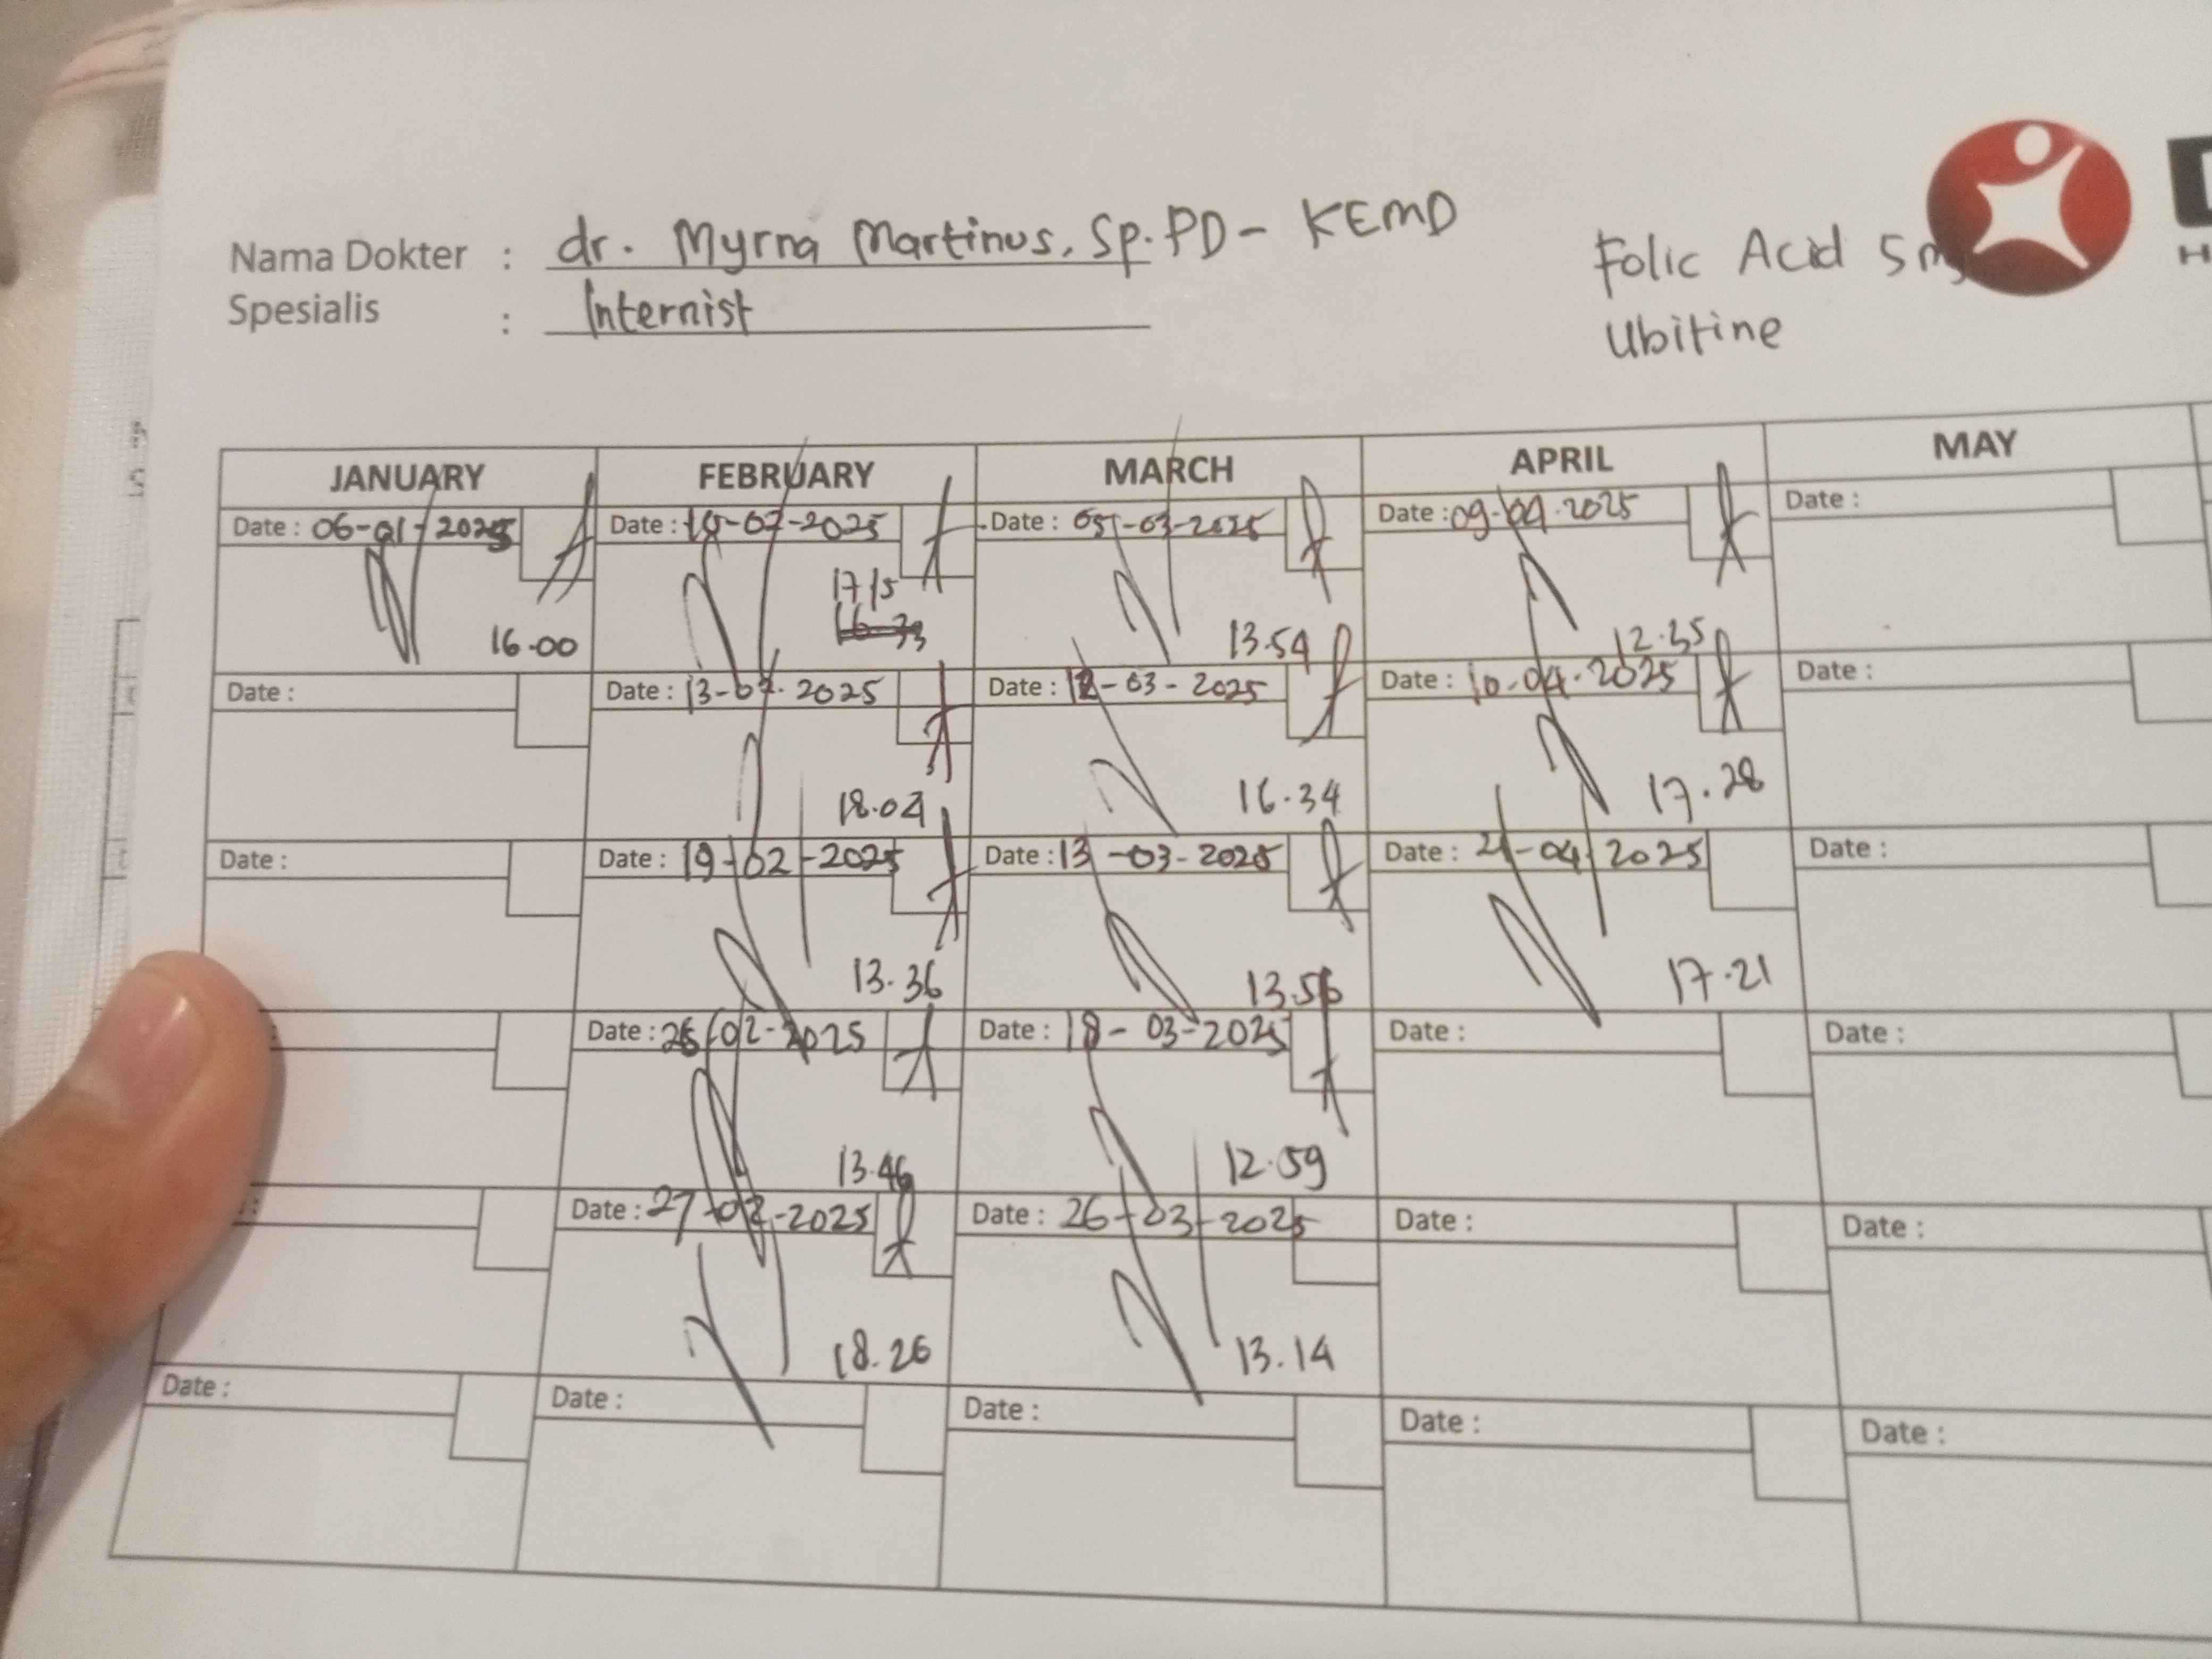 Nama Dokter : dr. Myrna Martinus, Sp.PD - KEMD
Spesialis : Internist
Folic Acid 5 mg
Ubitine
H
JANUARY FEBRUARY MARCH APRIL MAY
Date : 06-01-2025 Date : 10-02-2025 Date : 05-03-2025 Date : 09-04-2025 Date :
16.00 17 15 13.54 12.35
Date : Date : 13-02-2025 Date : 12-03-2025 Date : 10-04-2025 Date :
18.04 16.34 17.28
Date : Date : 19-02-2025 Date : 13-03-2025 Date : 21-04-2025 Date :
13.36 13.56 17.21
: Date : 26-02-2025 Date : 18-03-2025 Date : Date :
13.46 12.59
: Date : 27-02-2025 Date : 26-03-2025 Date : Date :
18.26 13.14
Date : Date : Date : Date : Date :